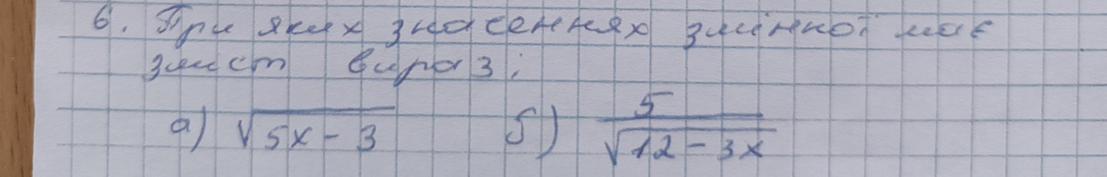 6. При яких значеннях змінної має
зміст вираз:
а) √(5x - 3) б) 5/√(12 - 3x)